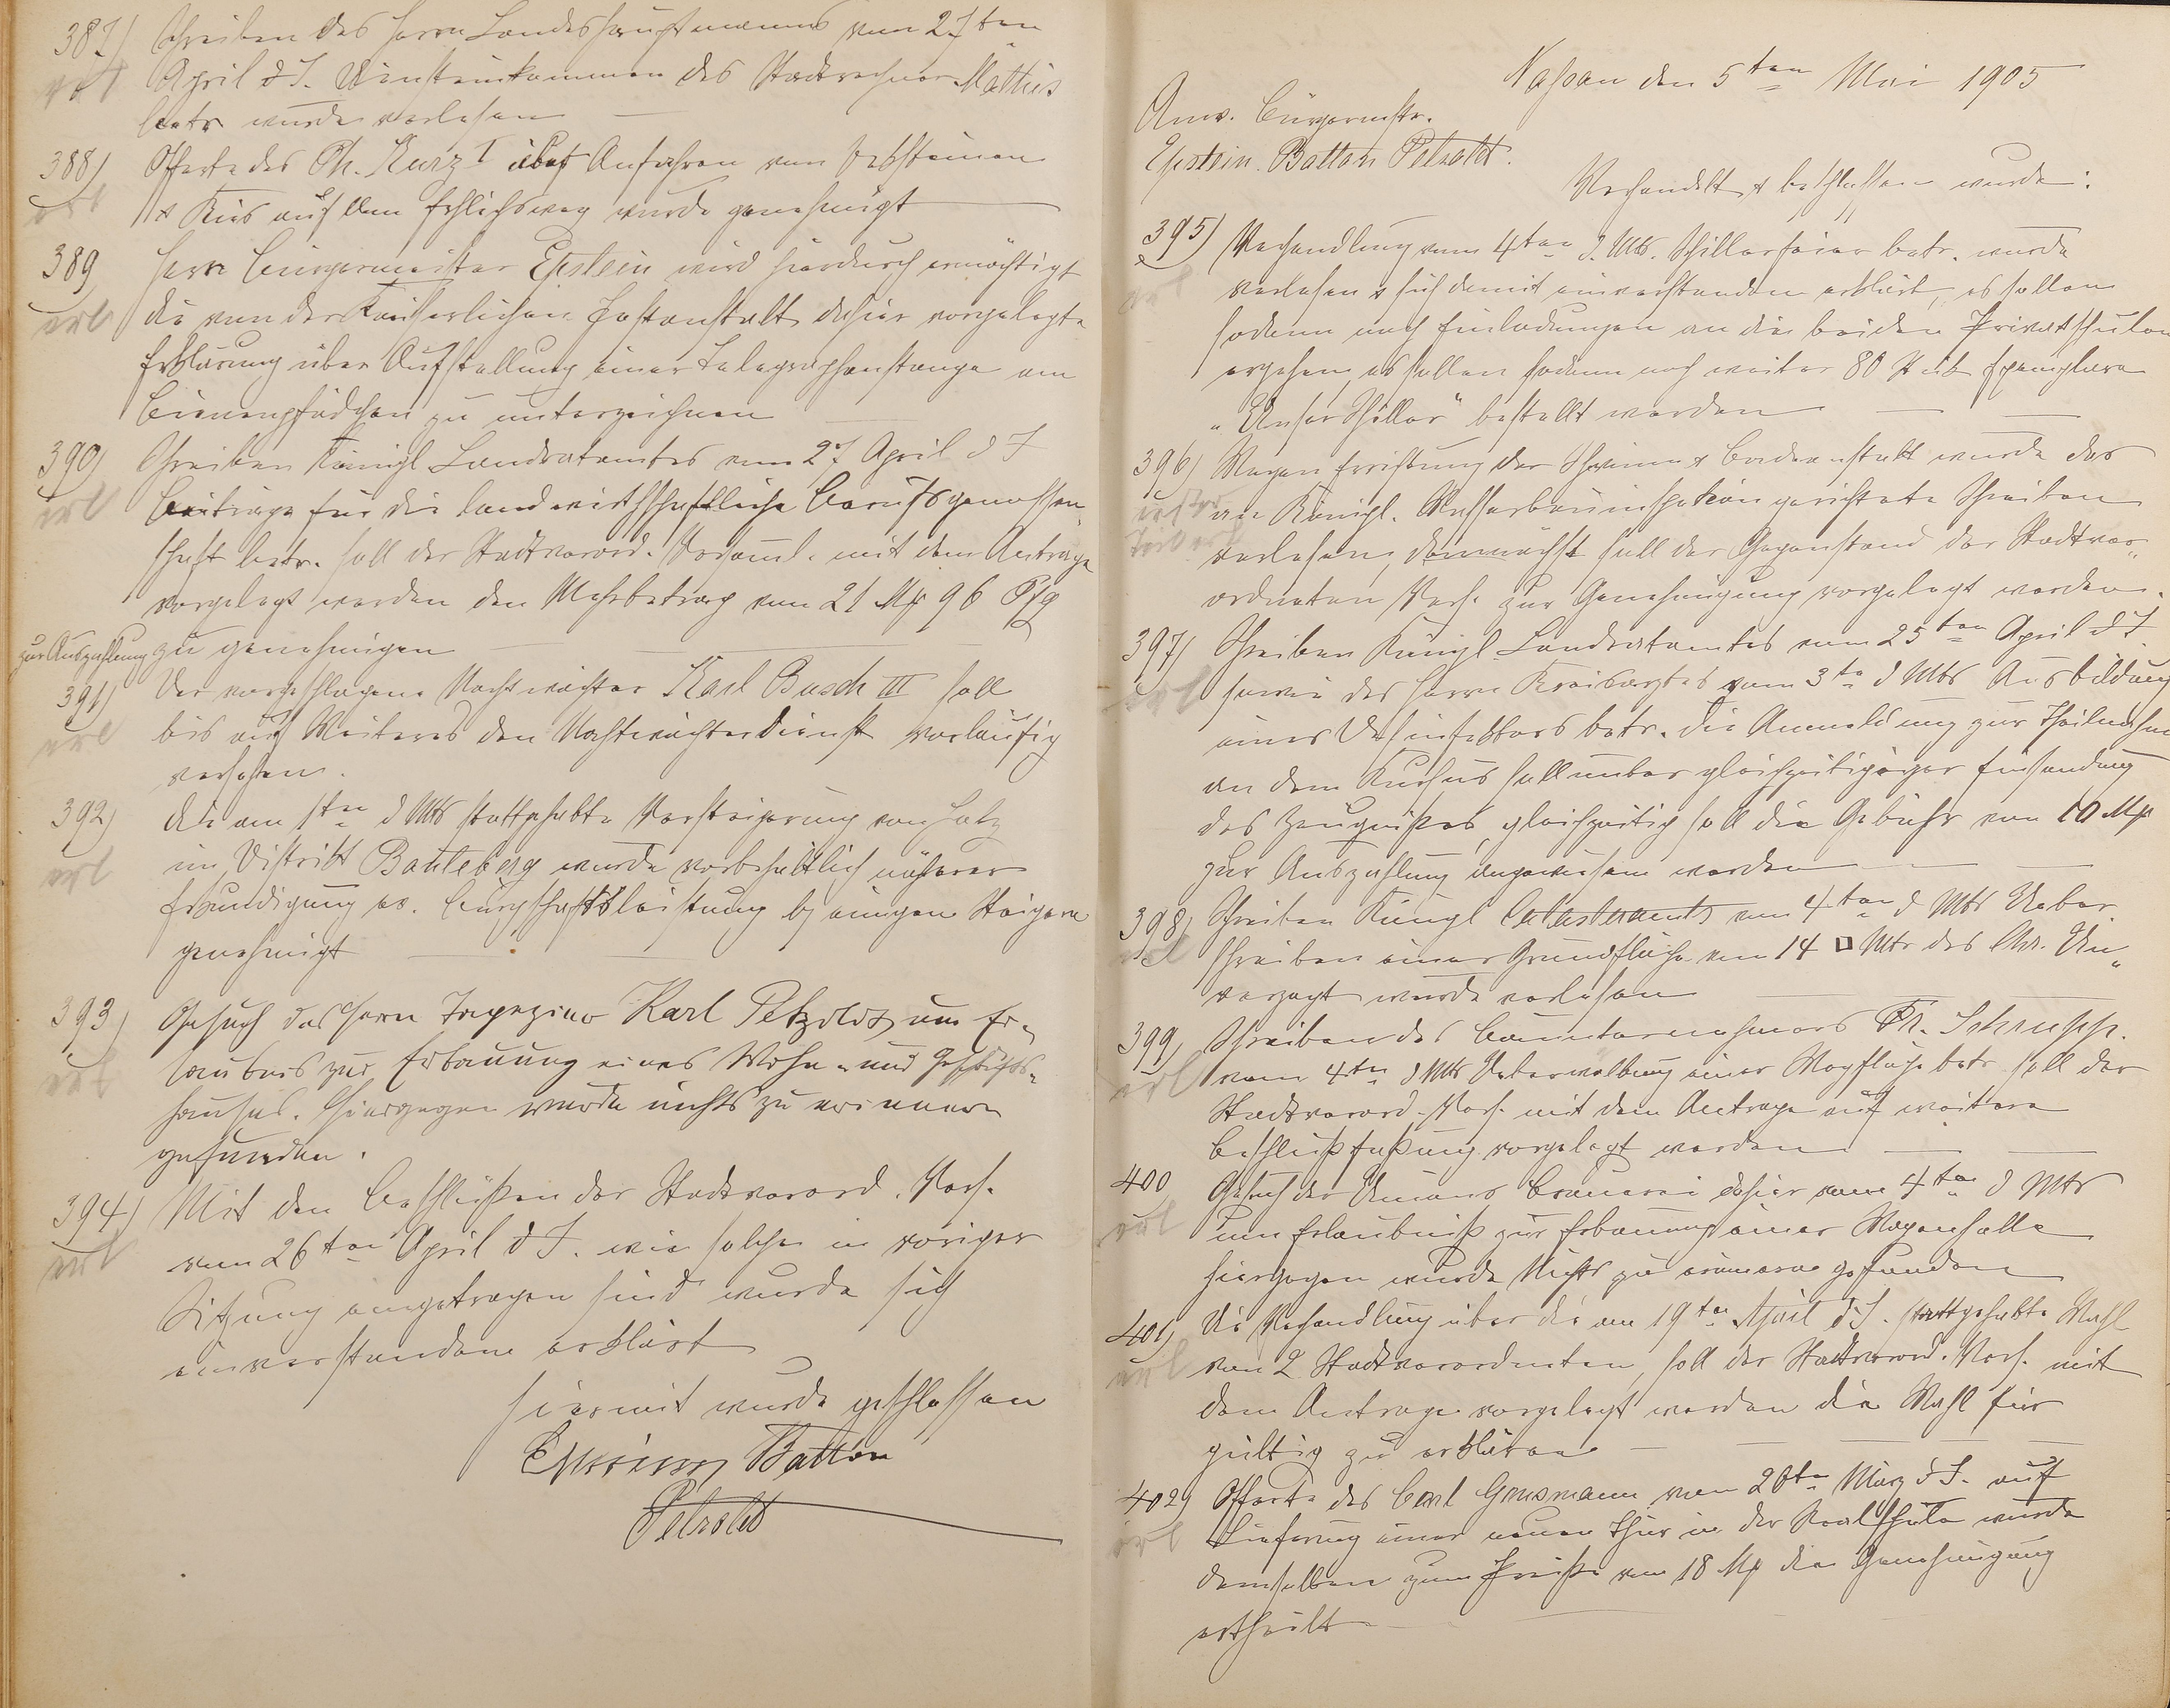 387) Schreiben des Herrn Landeshauptmanns vom 27ten
April d J. Diensteinkommen des Stadtrechner Mathis
betr. wurde verlesen
388) Offerte des Ph. Kurz I über Anfahren von
erl & Kies auf dem wurde genehmigt
389 Herr Bürgermeister Epstein wird hierdurch ermächtigt
erl die von der Kaiserlichen Postanstalt dahier vorgelegte
Erklärung über Aufstellung einer Telegraphenstange am
Bienenpfädchen zu unterzeichnen
390) Schreiben Königl Landratamtes vom 27 April d J
erl Beiträge für die landwirthschaftliche Berufsgenossen-
schaft betr. soll der Stadtverord. Versamml. mit dem Antrage
vorgelegt werden den Mehrbetrag von 21 Mk 96 Pfg
zur Auszahlung zu genehmigen
391) Der vorgeschlagene Nachtwächter Karl Busch III soll
erl bis auf Weiteres den Nachtwächterdienst vorläufig
versehen.
392) Die am 1ten d Mts stattgehabte Versteigerung von Holz
erl im Distrikt Bauleberg wurde vorbehaltlich näherer
Erkundigung ev. Bürgschaftsleistung bei einigen Steigern
genehmigt
393) Gesuch des Herrn Tapezirer Karl Petzoldt um Er-
erl laubnis zur Erbauung eines Wohn- und Geschäfts-
hauses. Hiergegen wurde nichts zu erinnern
gefunden.
394) Mit den Beschlüßen der Stadtverord. Vers.
erl vom 26ten April d J. wie solche in voriger
Sitzung eingetragen sind wurde sich
einverstanden erklärt
Hiermit wurde geschlossen
Epstein Batton
Petzoldt
Naßau den 5ten Mai 1905
Anw. Bürgermstr.
Epstein. Batton Petzoldt.
Verhandelt & beschlossen wurde:
395) Verhandlung vom 4ten d. Mts. Schillerfeier betr. wurde
erl verlesen & sich damit einverstanden erklärt, es sollen
sodann noch Einladungen an die beiden Privatschulen
ergehen, es sollen sodann noch weiter 80 Stück Exemplare
"Unser Schiller" bestellt werden
396) Wegen Errichtung der Schwimm & Badeanstalt wurde das
an Königl. Wasserbauinspektion gerichtete Schreiben
verlesen, demnächst soll der Gegenstand der Stadtver-
ordneten Vers. zur Genehmigung vorgelegt werden.
397) Schreiben Königl. Landratamtes vom 25ten April d J.
erl sowie des Herrn Kreisarztes vom 3ten d Mts Ausbildung
eines Desinfektors betr. die Anmeldung zur Theilnahme
an dem Kursus soll unter gleichzeitiger Einsendung
des Zeugnißes, gleichzeitig soll die Gebühr von 10 Mk
zur Auszahlung angewiesen werden
398) Schreiben Königl Katasteramts vom 4ten d Mts Ueber
erl schreiben einer Grundfläche von 14 □ Mtr des Chr. Un-
verzagt wurde verlesen
399) Schreiben des Bauunternehmers Ph. Schrupp.
erl vom 4ten d Mts Ueberwölbung einer Wegfläche betr. soll der
Stadtverord. Vers. mit dem Antrage auf weitere
Beschlußfaßung vorgelegt werden
400 Gesuch der Brauerei dahier vom 4ten d Mts
erl um Erlaubniß zur Erbauung einer Wagenhalle
hiergegen wurde Nichts zu erinnern gefunden
401) Die Verhandlung über die am 19ten April d J. stattgehabte Wahl
erl von 2 Stadtverordneten, soll der Stadtverord. Vers. mit
dem Antrage vorgelegt werden die Wahl für
gültig zu erklären
402) Offerte des Carl Grusmann vom 26ten März d J. auf
erl Lieferung einer neuen Thür in der Realschule wurde
demselben zum Preiße von 18 Mk die Genehmigung
ertheilt